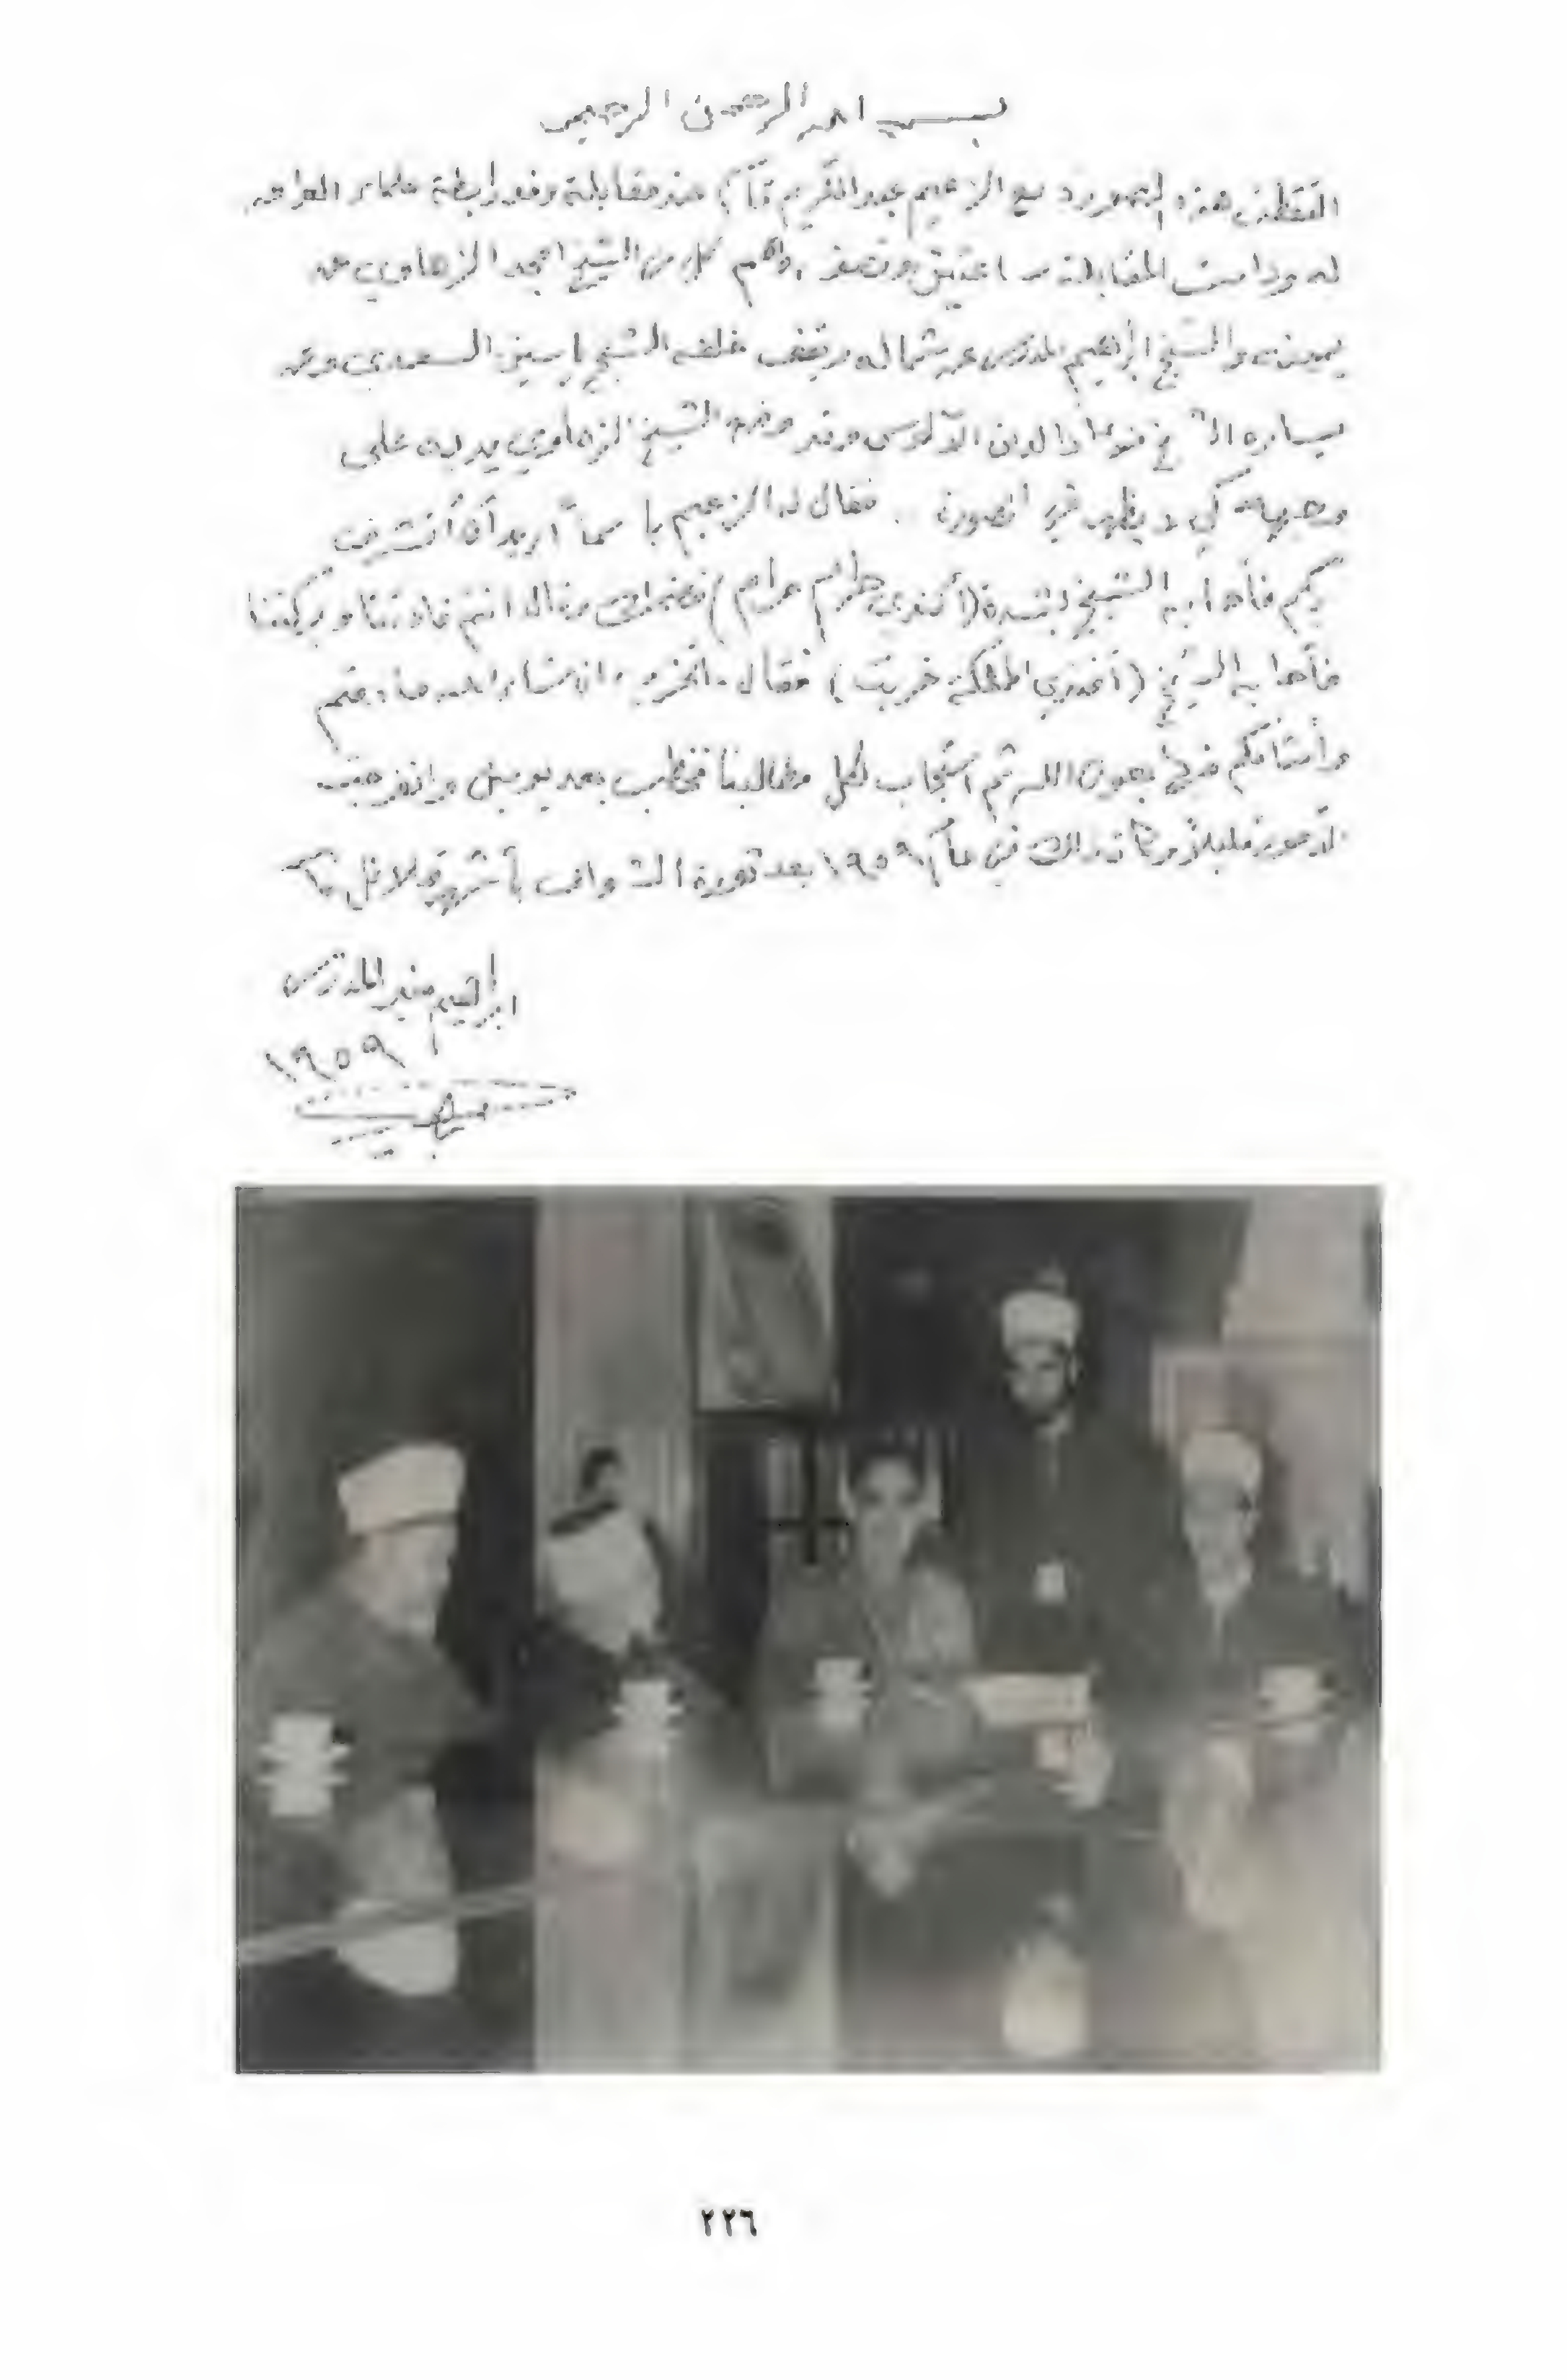 بسم الله الرحمن الرحيم
التقطت هذه الصورة مع الزعيم عبد الكريم قاسم عند مقابلة وفد رابطة علماء العراق
له ودامت المقابلة ساعتين ونصف وهم كل من الشيخ امجد الزهاوي عن
يمينه والشيخ ابراهيم المدرس عن شماله ويقف خلفه الشيخ ياسين السعدي وعن
يساره الشيخ فؤاد الدين الآلوسي وقد وضع الشيخ الزهاوي يديه على
وجهه كي لا يظهر في الصورة .. فقال له الزعيم يا أريد أن أتشرف
بكم فأجابه الشيخ بشدة (أفندي حرام حرام) وقال انتم قادتنا وبركتنا
فأجابه الشيخ (أفندي المملكة خربت) فقال ان شاء الله ما دمتم
وأمثالكم فيها بعون الله ثم استجاب لكل مطالبنا فخطب بعد يومين
قليلاً وكان ذلك في عام ١٩٥٩ بعد ثورة الشواف بأشهر قلائل
ابراهيم منير المدرس
١٩٥٩
٢٢٦